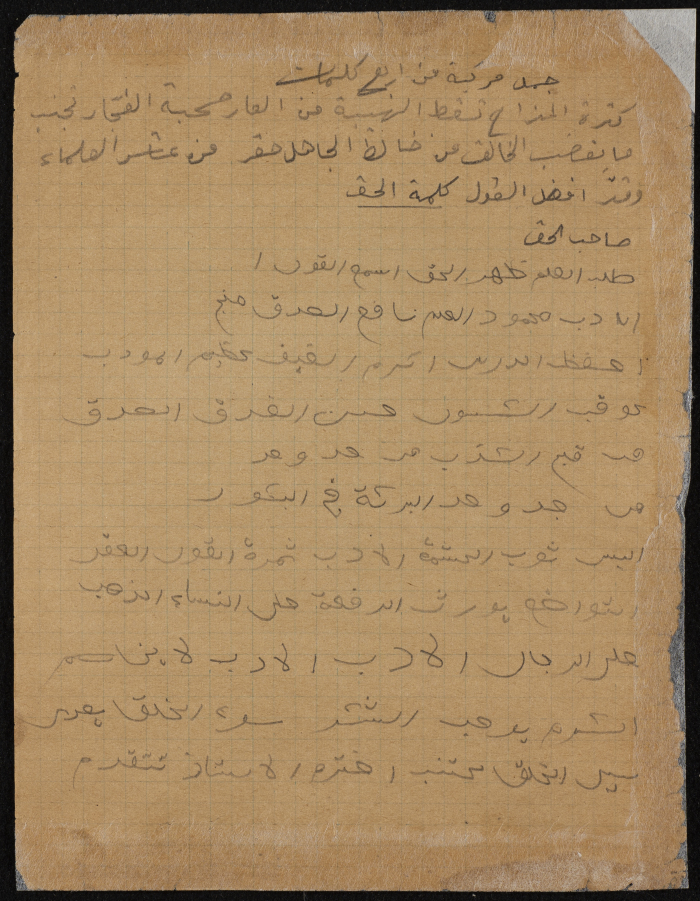 جمل مركبة من اربع كلمات
كثرة المزاح تسقط الهيبة من العار صحبة الفجار تجنب
ما يغضب الخالق من خالط الجاهل حقر من عاشر العلماء
وقر افضل القول كلمة الحق
صاحب الحق
طلب العلم ظهر الحق اسمع القول ا
الادب محمود العلم نافع الصدق منج
احفظ الدرس اكرم الضيف عظيم المودب
عوقب الكسول حسن الصدق
من قبح الكذب من جد وجد
من جد وجد البركة في البكور
البس ثوب الحشمة الادب ثمرة العقل
التواضع يورث الرفعة حلى النساء الذهب
حلى الرجال الادب الادب لا يخاصم
الكرم يوجب الشكر سوء الخلق يعدى
سيى الخلق مجتنب احترم الاستاذ تتقدم